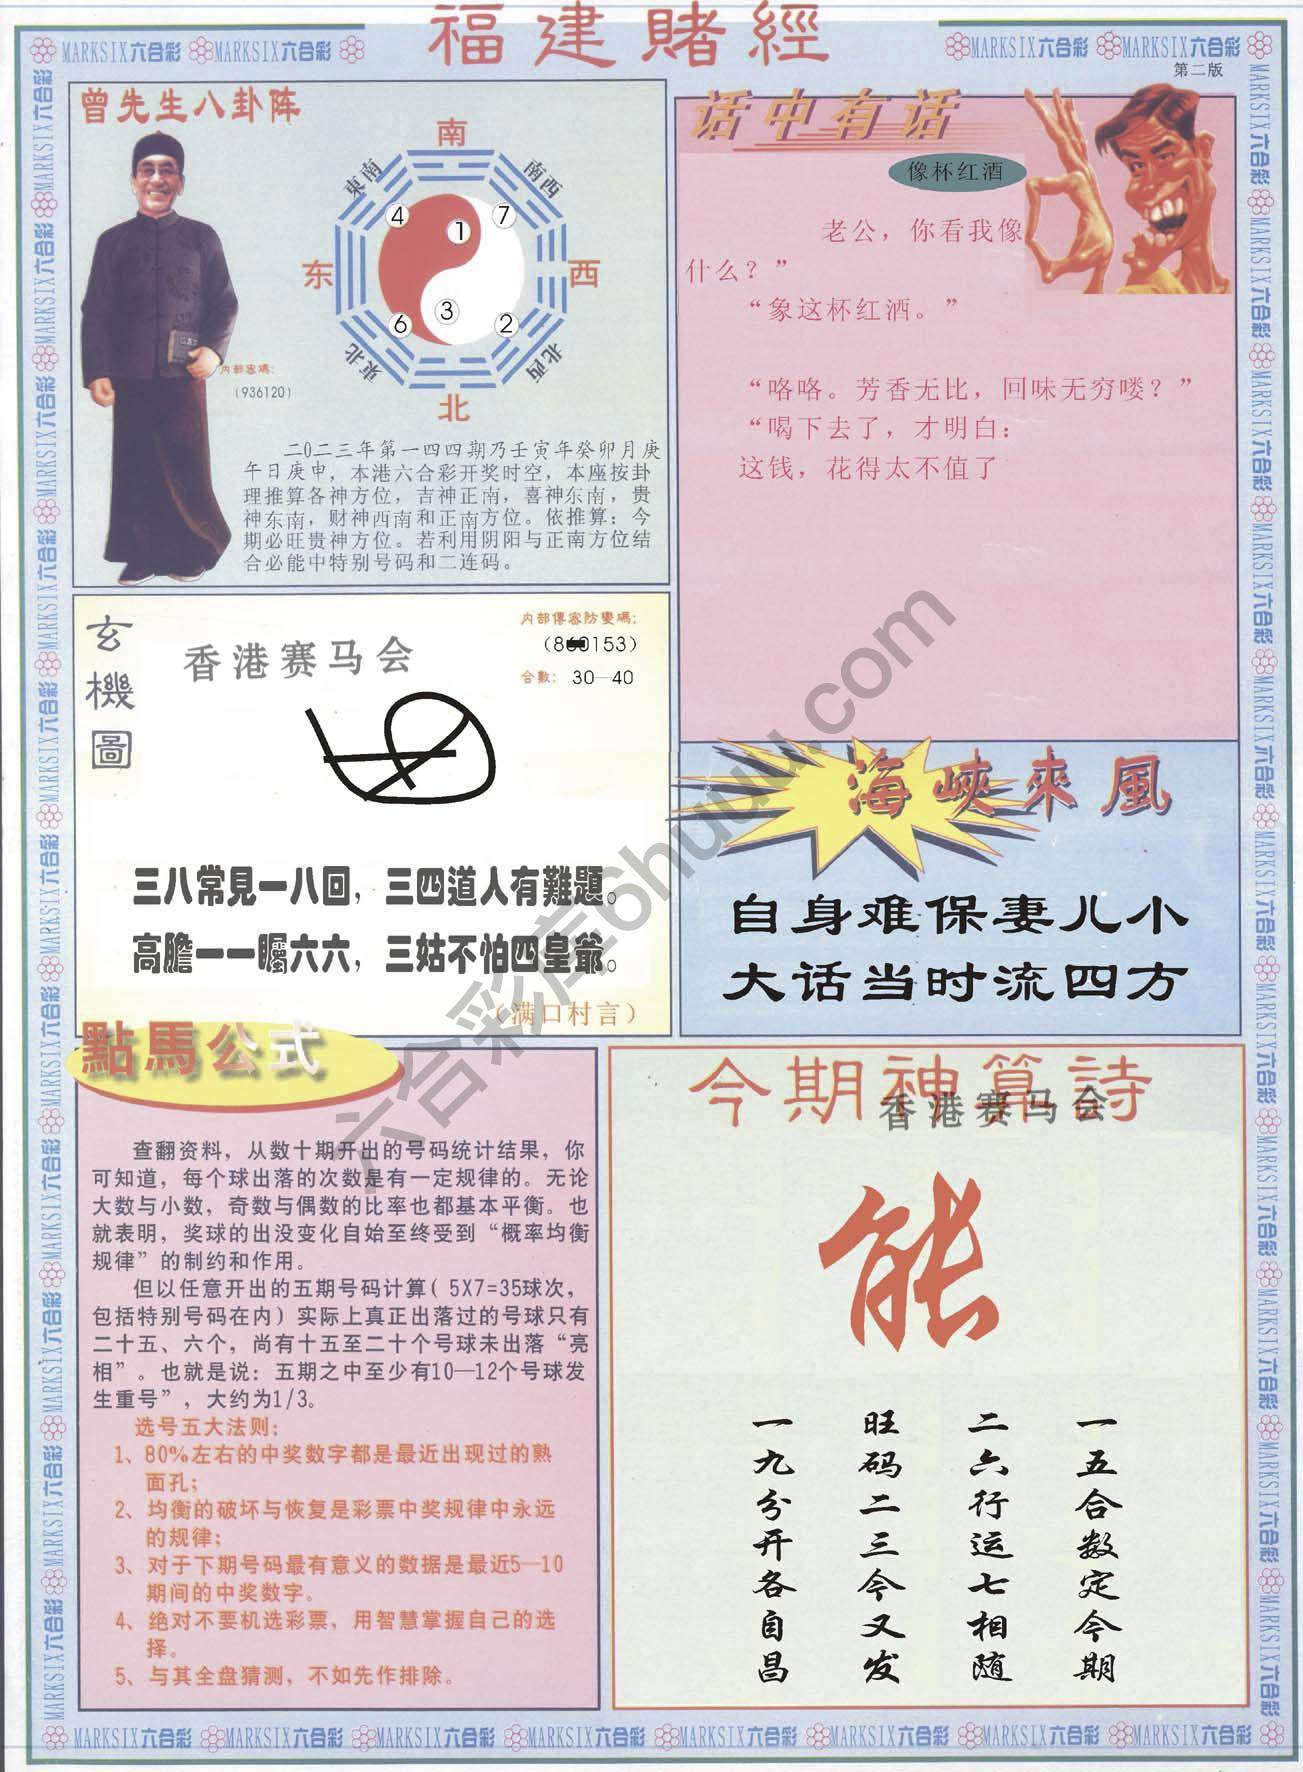 福建賭經
MARKSIX六合彩 MARKSIX六合彩
MARKSIX六合彩 MARKSIX六合彩
第二版
曾先生八卦阵
南
東南
南西
4
7
1
东
西
3
6
2
東北
北西
北
内部密碼：
（936120）
二○二三年第一四四期乃壬寅年癸卯月庚
午日庚申，本港六合彩开奖时空，本座按卦
理推算各神方位，吉神正南，喜神东南，贵
神东南，财神西南和正南方位。依推算：今
期必旺贵神方位。若利用阴阳与正南方位结
合必能中特别号码和二连码。
话中有话
像杯红酒
老公，你看我像
什么？”
“象这杯红酒。”
“咯咯。芳香无比，回味无穷喽？”
“喝下去了，才明白：
这钱，花得太不值了
玄機圖
香港赛马会
内部傳密防變碼：
合數：30—40
三八常見一八回，三四道人有難題。
高膽一一矚六六，三姑不怕四皇爺。
（满口村言）
海峽來風
自身难保妻儿小
大话当时流四方
點馬公式
查翻资料，从数十期开出的号码统计结果，你
可知道，每个球出落的次数是有一定规律的。无论
大数与小数，奇数与偶数的比率也都基本平衡。也
就表明，奖球的出没变化自始至终受到“概率均衡
规律”的制约和作用。
但以任意开出的五期号码计算（5X7=35球次，
包括特别号码在内）实际上真正出落过的号球只有
二十五、六个，尚有十五至二十个号球未出落“亮
相”。也就是说：五期之中至少有10—12个号球发
生重号”，大约为1/3。
选号五大法则：
1、80%左右的中奖数字都是最近出现过的熟
面孔；
2、均衡的破坏与恢复是彩票中奖规律中永远
的规律；
3、对于下期号码最有意义的数据是最近5—10
期间的中奖数字。
4、绝对不要机选彩票，用智慧掌握自己的选
择。
5、与其全盘猜测，不如先作排除。
今期神算詩
香港赛马会
能
一五合数定今期
二六行运七相随
旺码二三今又发
一九分开各自昌
六合彩库6huuu.com
MARKSIX六合彩 MARKSIX六合彩 MARKSIX六合彩 MARKSIX六合彩 MARKSIX六合彩 MARKSIX六合彩 MARKSIX六合彩 MARKSIX六合彩